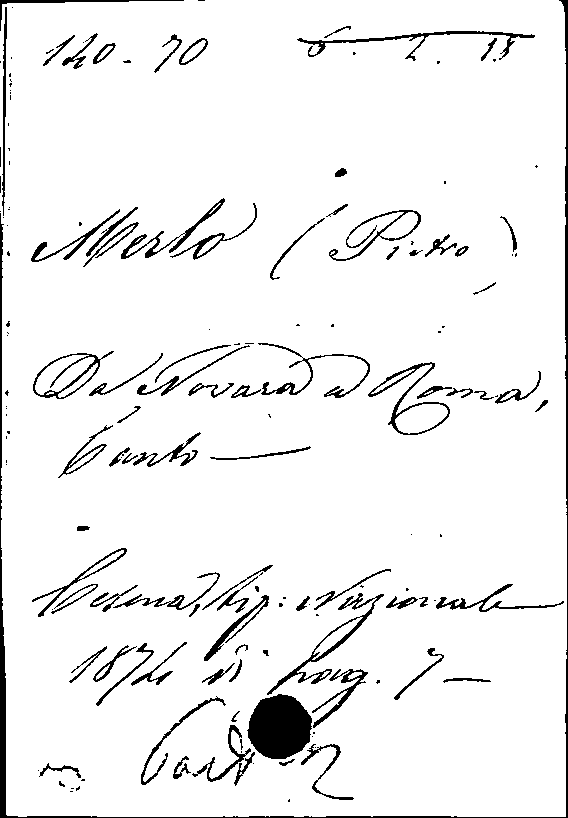 120-70 6. 2. 18
Merlo (Pietro)
Da Novara a Roma,
Canto —
Cesena, tip: Nazionale
1874 di pag. 7 —